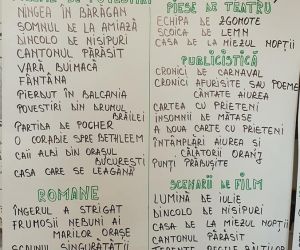 NINGEA ÎN BĂRĂGAN
SOMNUL DE LA AMIAZĂ
DINCOLO DE NISIPURI
CANTONUL PĂRĂSIT
VARĂ BUIMACĂ
FÂNTÂNA
PIERDUT ÎN BALCANIA
POVESTIRI DIN DRUMUL
BRĂILEI
PARTIDA DE POCHER
O CORABIE SPRE BETHLEEM
CAII ALBI DIN ORAȘUL
BUCUREȘTI
CASA CARE SE LEAGĂNĂ
ROMANE
ÎNGERUL A STRIGAT
FRUMOȘII NEBUNI AI
MARILOR ORAȘE
SCAUNUL SINGURĂTĂȚII
PIESE DE TEATRU
ECHIPA DE ZGOMOTE
SCOICA DE LEMN
CASA DE LA MIEZUL NOPȚII
PUBLICISTICĂ
CRONICI DE CARNAVAL
CRONICI AFURISITE SAU POEME
CÂNTATE AIUREA
CARTEA CU PRIETENI
INSOMNII DE MĂTASE
A DOUA CARTE CU PRIETENI
ÎNTÂMPLĂRI AIUREA ȘI
CĂLĂTORII ORANJ
PUNȚI PRĂBUȘITE
SCENARII DE FILM
LUMINĂ DE IULIE
DINCOLO DE NISIPURI
CASA DE LA MIEZUL NOPȚII
CANTONUL PĂRĂSIT